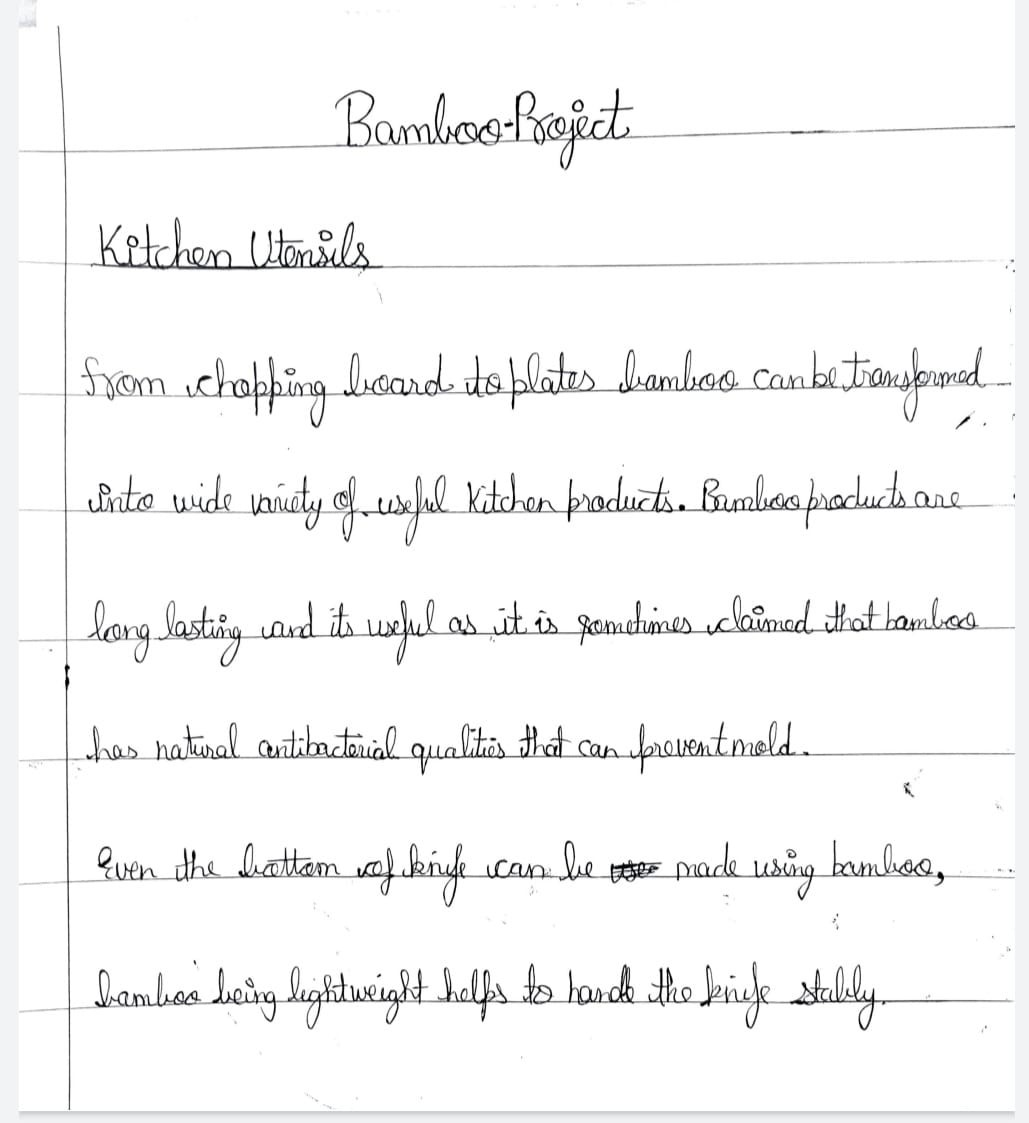 Bamboo-Project
Kitchen Utensils
from chopping board to plates bamboo can be transformed
into wide variety of useful kitchen products. Bamboo products are
long lasting and its useful as it is sometimes claimed that bamboo
has natural antibacterial qualities that can prevent mold.
Even the bottom of knife can be made using bamboo,
bamboo being lightweight helps to handle the knife stably.